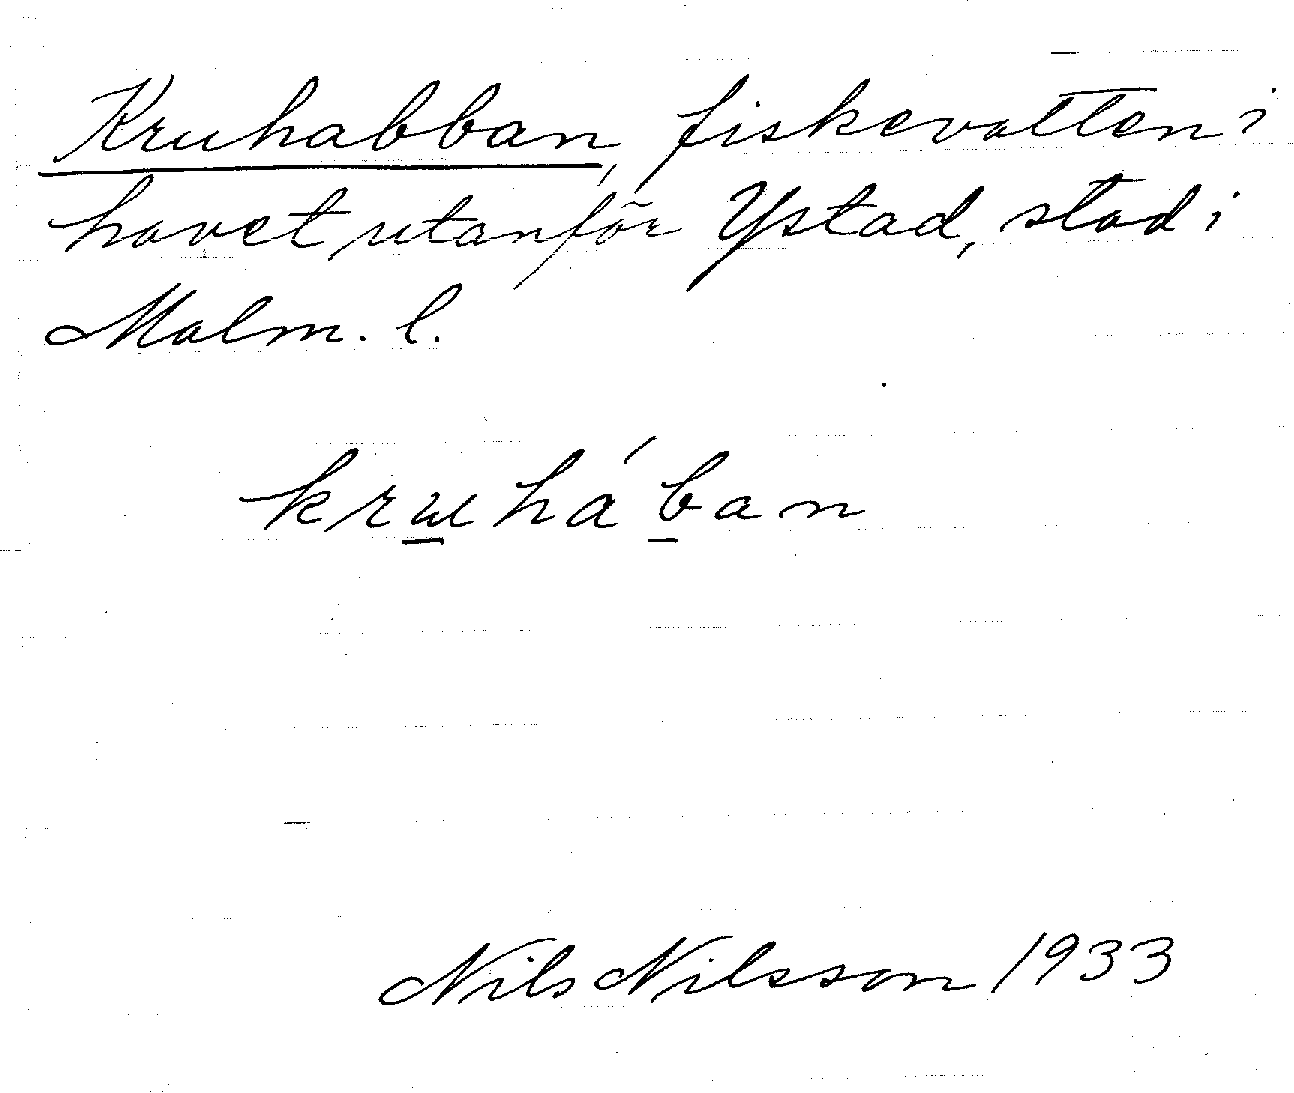 Kruhabban, fiskevatten i
havet utanför Ystad, stad i
Malm. l.
kruhá´ban
Nils Nilsson 1933